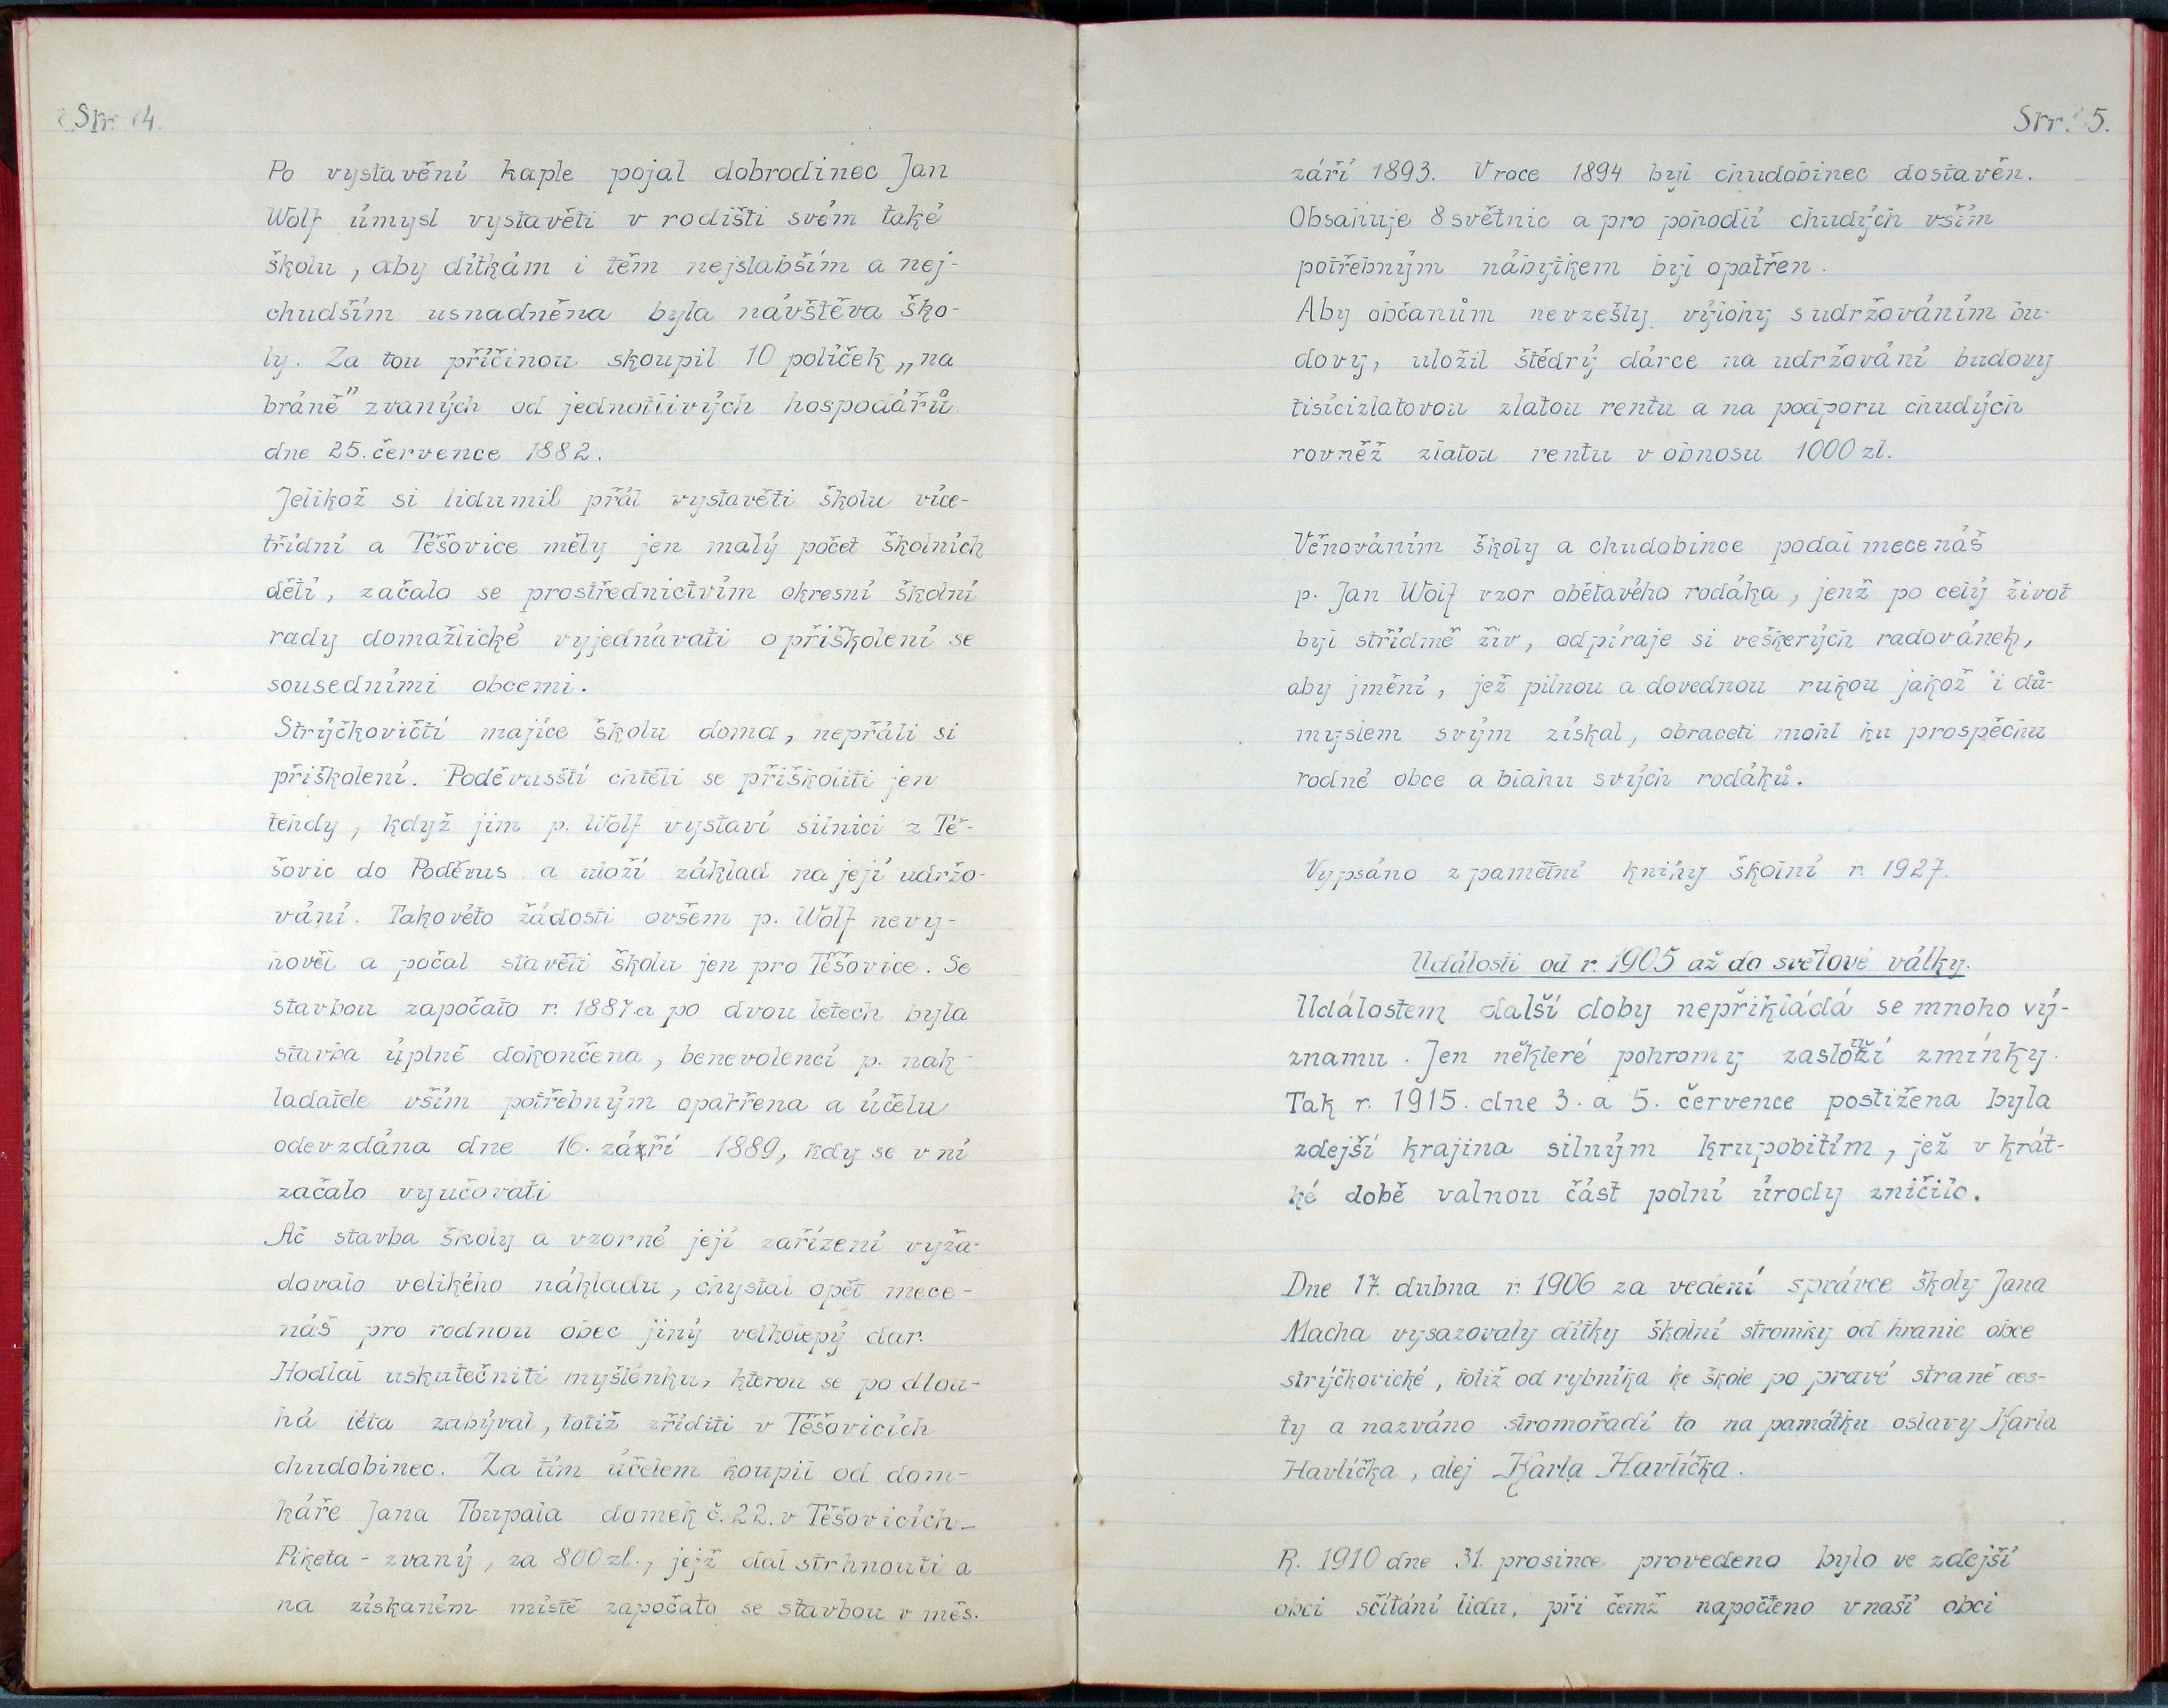 Str. 4.
Po vystavění kaple pojal dobrodinec Jan
Wolf úmysl vystavěti v rodišti svém také
školu, aby dítkám i těm nejslabším a nej-
chudším usnadněna byla návštěva ško-
ly. Za tou příčinou skoupil 10 políček „na
bráně" zvaných od jednotlivých hospodářů
dne 25. července 1882.
Jelikož si lidumil přál vystavěti školu více-
třídní a Těšovice měly jen malý počet školních
dětí, začalo se prostřednictvím okresní školní
rady domažlické vyjednávati o přiškolení se
sousedními obcemi.
Strýčkovičtí majíce školu doma, nepřáli si
přiškolení. Poděvusští chtěli se přiškoliti jen
tehdy, když jim p. Wolf vystaví silnici z Tě-
šovic do Poděvus a uloží základ na její udržo-
vání. Takovéto žádosti ovšem p. Wolf nevy-
hověl a počal stavěti školu jen pro Těšovice. Se
stavbou započato r. 1887 a po dvou letech byla
stavba úplně dokončena, benevolencí p. nak-
ladatele vším potřebným opatřena a účelu
odevzdána dne 16. září 1889, kdy se v ní
začalo vyučovati
Ač stavba školy a vzorné její zařízení vyža-
dovalo velikého nákladu, chystal opět mece-
náš pro rodnou obec jiný velkolepý dar.
Hodlal uskutečniti myšlénku, kterou se po dlou-
há léta zabýval, totiž zříditi v Těšovicích
chudobinec. Za tím účelem koupil od dom-
káře Jana Toupala domek č. 22. v Těšovicích-
Piketa - zvaný, za 800 zl., jejž dal strhnouti a
na získaném místě započato se stavbou v měs.
Str. 5.
září 1893. V roce 1894 byl chudobinec dostavěn.
Obsahuje 8 světnic a pro pohodlí chudých vším
potřebným nábytkem byl opatřen.
Aby občanům nevzešly výlohy s udržováním bu-
dovy, uložil štědrý dárce na udržování budovy
tisícizlatovou zlatou rentu a na podporu chudých
rovněž zlatou rentu v obnosu 1000 zl.
Věnováním školy a chudobince podal mecenáš
p. Jan Wolf vzor obětavého rodáka, jenž po celý život
byl střídmě živ, odpíraje si veškerých radovánek,
aby jmění, jež pilnou a dovednou rukou jakož i dů-
myslem svým získal, obraceti mohl ku prospěchu
rodné obce a blahu svých rodáků.
Vypsáno z pamětní knihy školní r. 1927.
Události od r. 1905 až do světové války.
Událostem další doby nepřikládá se mnoho vý-
znamu. Jen některé pohromy zasloží zmínky.
Tak r. 1915. dne 3. a 5. července postižena byla
zdejší krajina silným krupobitím, jež v krát-
ké době valnou část polní úrody zničilo.
Dne 17. dubna r. 1906 za vedení správce školy Jana
Macha vysazovaly dítky školní stromky od hranic obce
strýčkovické, totiž od rybníka ke škole po pravé straně ces-
ty a nazváno stromořadí to na památku oslavy Karla
Havlíčka, alej Karla Havlíčka.
R. 1910 dne 31. prosince provedeno bylo ve zdejší
obci sčítání lidu, při čemž napočteno v naší obci